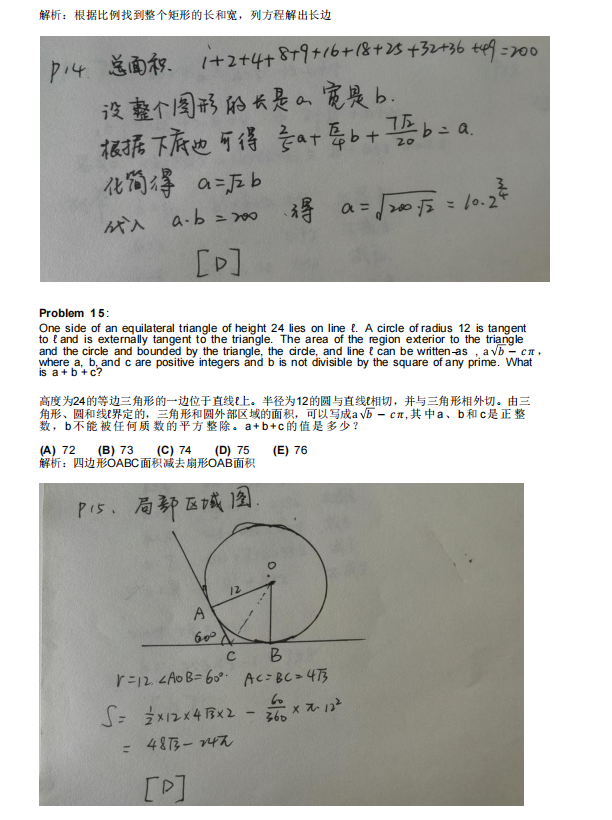 解析：根据比例找到整个矩形的长和宽，列方程解出长边
P14. 总面积. 1+2+4+8+9+16+18+25+32+36+49=200
设整个图形的长是a, 宽是b.
根据下底边可得 2/5 a + √2/4 b + 7√2/20 b = a.
化简得 a=√2 b
代入 a·b=200 得 a=√(200·√2) = 10·2^(3/4)
[D]
Problem 15:
One side of an equilateral triangle of height 24 lies on line ℓ. A circle of radius 12 is tangent
to ℓ and is externally tangent to the triangle. The area of the region exterior to the triangle
and the circle and bounded by the triangle, the circle, and line ℓ can be written-as , a√b − cπ ,
where a, b, and c are positive integers and b is not divisible by the square of any prime. What
is a + b + c?
高度为24的等边三角形的一边位于直线ℓ上。半径为12的圆与直线ℓ相切，并与三角形相外切。由三
角形、圆和线ℓ界定的，三角形和圆外部区域的面积，可以写成a√b − cπ, 其中a、b和c是正整
数，b不能被任何质数的平方整除。a+b+c的值是多少？
(A) 72 (B) 73 (C) 74 (D) 75 (E) 76
解析：四边形OABC面积减去扇形OAB面积
P15、局部区域图.
O
12
A
60°
C B
r=12. ∠AOB=60°. AC=BC=4√3
S= 1/2×12×4√3×2 − 60/360 × π·12²
= 48√3−24π
[D]